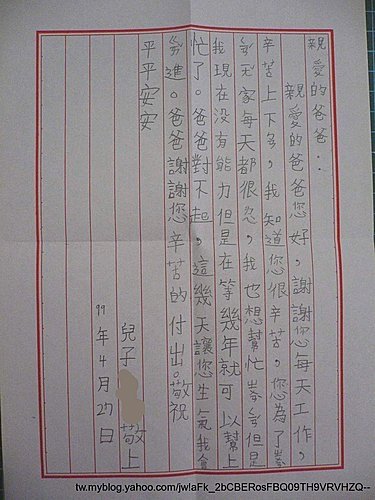 親愛的爸爸：
親愛的爸爸您好，謝謝您每天工作，
辛苦上下，我知道您很辛苦，您為了
家每天都很，我也想幫忙但是
我現在没有能力但是在等幾年就可以幫上
忙了。爸爸對不起，這幾天讓您生氣我會
進。爸爸謝謝您辛苦的付出。敬祝
平平安安
兒子 敬上
99年4月27日
tw.myblog.yahoo.com/jwlaFk_2bCBERosFBQ09TH9VRVHZQ--